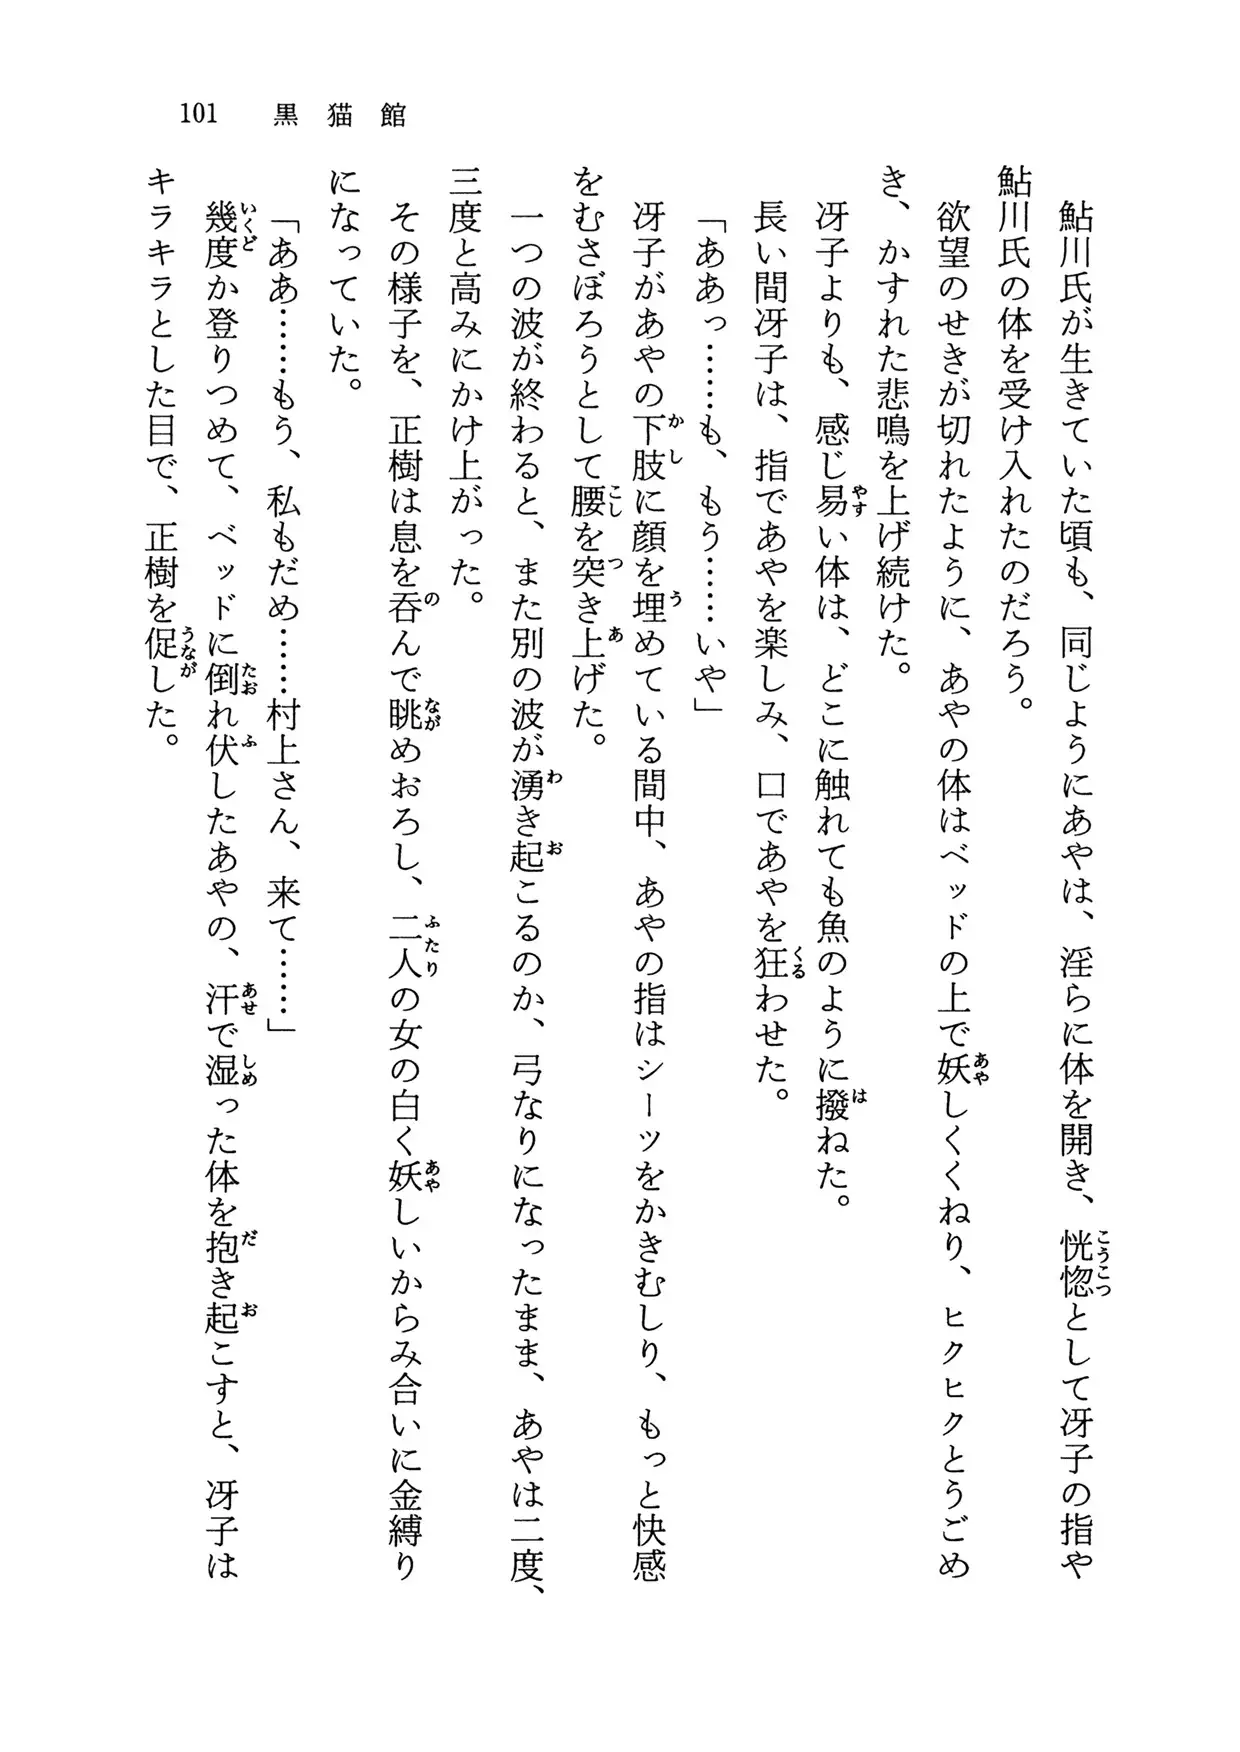 101　黒猫館
　鮎川氏が生きていた頃も、同じようにあやは、淫らに体を開き、恍惚として冴子の指や
鮎川氏の体を受け入れたのだろう。
　欲望のせきが切れたように、あやの体はベッドの上で妖しくくねり、ヒクヒクとうごめ
き、かすれた悲鳴を上げ続けた。
　冴子よりも、感じ易い体は、どこに触れても魚のように撥ねた。
　長い間冴子は、指であやを楽しみ、口であやを狂わせた。
「ああっ……も、もう……いや」
　冴子があやの下肢に顔を埋めている間中、あやの指はシーツをかきむしり、もっと快感
をむさぼろうとして腰を突き上げた。
　一つの波が終わると、また別の波が湧き起こるのか、弓なりになったまま、あやは二度、
三度と高みにかけ上がった。
　その様子を、正樹は息を呑んで眺めおろし、二人の女の白く妖しいからみ合いに金縛り
になっていた。
「ああ……もう、私もだめ……村上さん、来て……」
　幾度か登りつめて、ベッドに倒れ伏したあやの、汗で湿った体を抱き起こすと、冴子は
キラキラとした目で、正樹を促した。